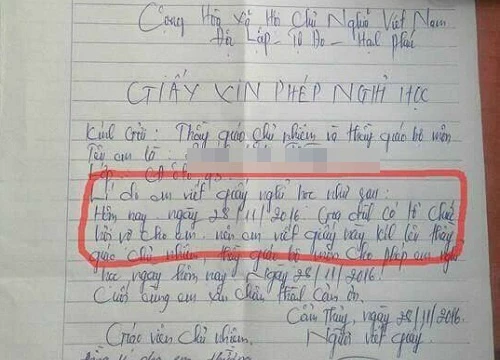 Cộng Hòa Xã Hội Chủ Nghĩa Việt Nam
Độc Lập - Tự Do - Hạnh Phúc
GIẤY XIN PHÉP NGHỈ HỌC
Kính Gửi: Thầy giáo chủ nhiệm và thầy giáo bộ môn
Tên em là:
Lớp:
Lí do em viết giấy nghỉ học như sau:
Hôm nay ngày 28/11/2016. Gia đình có tổ chức
cưới vợ cho em nên em viết giấy này kể lên thầy
giáo chủ nhiệm thầy giáo bộ môn cho phép em nghỉ
học ngày hôm nay Ngày 28/11/2016.
Cuối cùng em xin chân thành cảm ơn.
Cẩm Thủy, ngày 28/11/2016
Giáo viên chủ nhiệm. Người viết giấy.